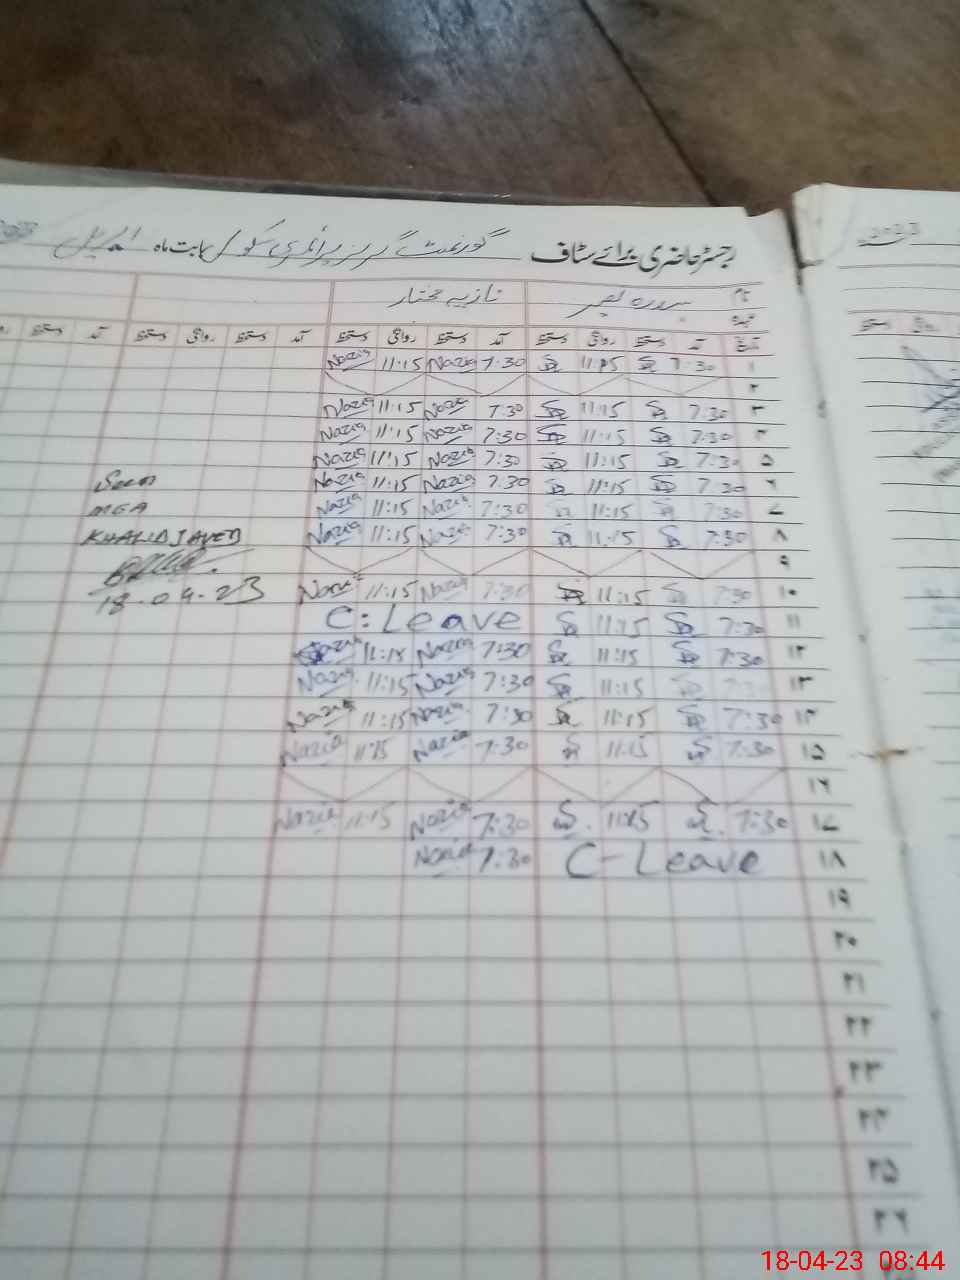 رجسٹر حاضری برائے سٹاف گورنمنٹ گرلز پرائمری سکول بابت ماہ اپریل
نام نازیہ مختار
عہدہ
تاریخ آمد دستخط روانگی دستخط آمد دستخط روانگی دستخط آمد دستخط روانگی دستخط آمد دستخط
۱ 7:30 11:15 7:30 Nazia 11:15 Nazia
۲
۳ 7:30 11:15 7:30 Nazia 11:15 Nazia
۴ 7:30 11:15 7:30 Nazia 11:15 Nazia
۵ 7:30 11:15 7:30 Nazia 11:15 Nazia
۶ 7:30 11:15 7:30 Nazia 11:15 Nazia
۷ 7:30 11:15 7:30 Nazia 11:15 Nazia
۸ 7:30 11:15 7:30 Nazia 11:15 Nazia
۹
۱۰ 7:30 11:15 7:30 Nazia 11:15 Nazia
۱۱ 7:30 11:15 C: Leave
۱۲ 7:30 11:15 7:30 Nazia 11:15 Nazia
۱۳ 7:30 11:15 7:30 Nazia 11:15 Nazia
۱۴ 7:30 11:15 7:30 Nazia 11:15 Nazia
۱۵ 7:30 11:15 7:30 Nazia 11:15 Nazia
۱۶
۱۷ 7:30 11:15 7:30 Nazia 11:15 Nazia
۱۸ C-Leave 7:30 Nazia
۱۹
۲۰
۲۱
۲۲
۲۳
۲۴
۲۵
۲۶
Seen
MEA
KHALID JAVED
18-04-23
18-04-23 08:44